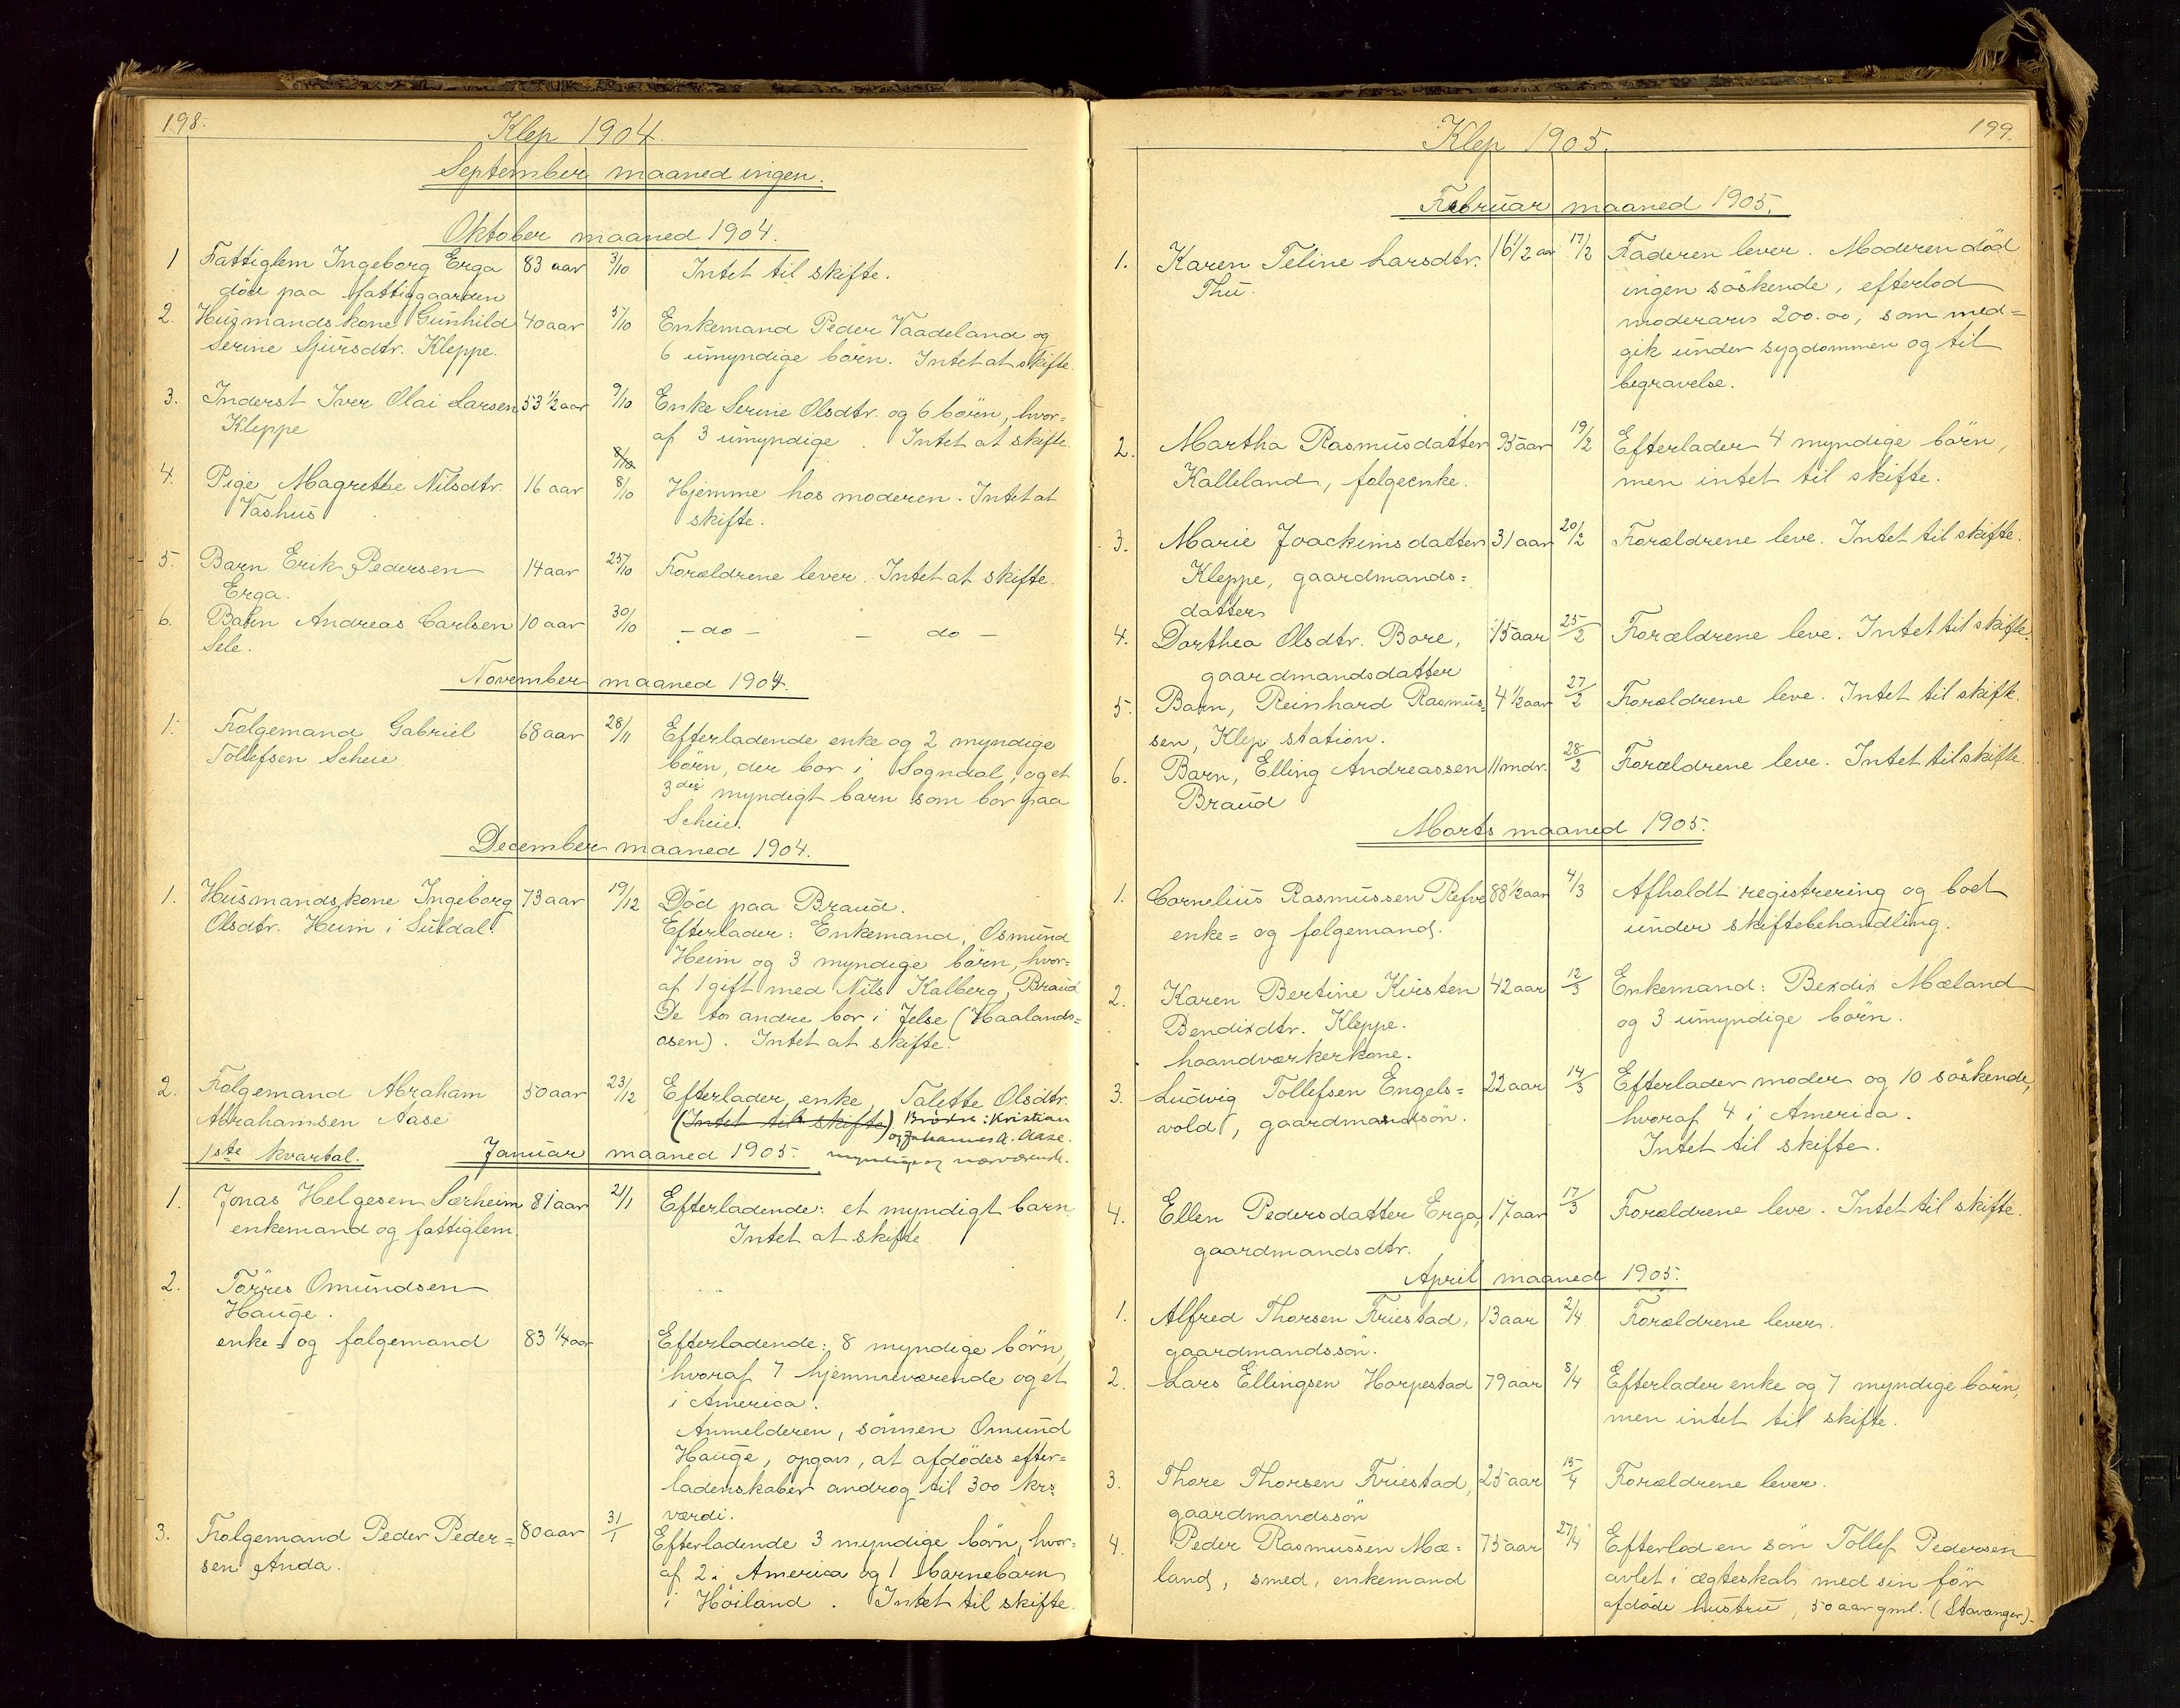 198.
Klep 1904.
September maaned ingen.
Oktober maaned 1904.
1 Fattiglem Ingeborg Erga 83 aar 3/10 Intet til skifte.
død paa fattiggaarden
2. Husmandskone Gunhild 40 aar 5/10 Enkemand Peder Vaadeland og
Serine Sjursdtr. Kleppe. 6 umyndige börn. Intet at skifte.
3. Inderst Iver Olai Larsen 53 1/2 aar 9/10 Enke Serine Olsdtr. og 6 börn, hvor=
Kleppe af 3 umyndige. Intet at skifte.
8/10
4. Pige Magrethe Nilsdtr. 16 aar 8/10 Hjemme hos moderen. Intet at
Vashus skifte.
5. Barn Erik Pedersen 14 aar 25/10 Forældrene lever. Intet at skifte.
Erga.
6. Barn Andreas Carlsen 10 aar 30/10 - do - - do -
Sele.
November maaned 1904.
1. Folgemand Gabriel 68 aar 28/11 Efterladende enke og 2 myndige
Tollefsen Scheie börn, der bor i Sogndal, og et
3die myndigt barn som bor paa
Scheie.
December maaned 1904.
1. Husmandskone Ingeborg 73 aar 19/12 Död paa Braud.
Olsdtr. Heim i Suldal. Efterlader: Enkemand, Osmund
Heim og 3 myndige börn, hvor=
af 1 gift med Nils Kalberg, Braud
De to andre bor i Jelse (Haalands=
osen). Intet at skifte.
2. Folgemand Abraham 50 aar 23/12 Efterlader enke Talette Olsdtr.
Abrahamsen Aase (Intet til skifte) Brødre: Kristian
og Johannes A. Aase.
myndige og nærværende.
1ste kvartal. Januar maaned 1905.
1. Jonas Helgesen Særheim 81 aar 21/1 Efterladende: et myndigt barn.
enkemand og fattiglem. Intet at skifte.
2. Törres Omundsen
Hauge.
enke= og folgemand 83 1/4 aar Efterladende: 8 myndige börn,
hvoraf 7 hjemmeværende og et
i America.
Anmelderen, sönnen Omund
Hauge, opgav, at afdödes efter=
ladenskaber androg til 300 krs
værdi.
3. Folgemand Peder Peder= 80 aar 31/1 Efterladende 3 myndige börn, hvor=
sen Anda. af 2 i America og 1 barnebarn
i Höiland. Intet til skifte.
199.
Klep 1905.
Februar maaned 1905.
1. Karen Teline Larsdtr. 16 1/2 aar 17/2 Faderen lever. Moderen död
Thu. ingen söskende, efterlod
moderarv 200.00, som med=
gik under sygdommen og til
begravelse.
2. Martha Rasmusdatter 95 aar 19/2 Efterlader 4 myndige börn,
Kalleland, folgeenke. men intet til skifte.
3. Marie Joackimsdatter 31 aar 20/2 Forældrene leve. Intet til skifte.
Kleppe, gaardmands=
datter
4. Dorthea Olsdtr. Bore, 15 aar 25/2 Forældrene leve. Intet til skifte.
gaardmandsdatter
5. Barn, Reinhard Rasmus= 4 1/2 aar 27/2 Forældrene leve. Intet til skifte.
sen, Klep station.
6. Barn, Elling Andreassen 11 mdr. 28/2 Forældrene leve. Intet til skifte.
Braud
Marts maaned 1905.
1. Cornelius Rasmussen Refve 88 1/2 aar 4/3 Afholdt registrering og boet
enke= og folgemand. under skiftebehandling.
2. Karen Bertine Kirsten 42 aar 12/3 Enkemand: Bendix Mæland
Bendixdtr. Kleppe. og 3 umyndige börn.
haandværkerkone.
3. Ludvig Tollefsen Engels= 22 aar 14/3 Efterlader moder og 10 söskende,
vold, gaardmandsön. hvoraf 4 i America.
Intet til skifte.
4. Ellen Pedersdatter Erga, 17 aar 17/3 Forældrene leve. Intet til skifte.
gaardmandsdtr.
April maaned 1905.
1. Alfred Thorsen Friestad, 13 aar 2/4 Forældrene lever.
gaardmandssön.
2. Lars Ellingsen Horpestad 79 aar 8/4 Efterlader enke og 7 myndige börn,
men intet til skifte.
3. Thore Thorsen Friestad, 25 aar 15/4 Forældrene lever.
gaardmandssön
4. Peder Rasmussen Mæ= 75 aar 27/4 Efterlod en sön Tollef Pedersen
land, smed, enkemand avlet i ægteskab med sin för
afdöde hustru, 50 aar gml. (Stavanger).